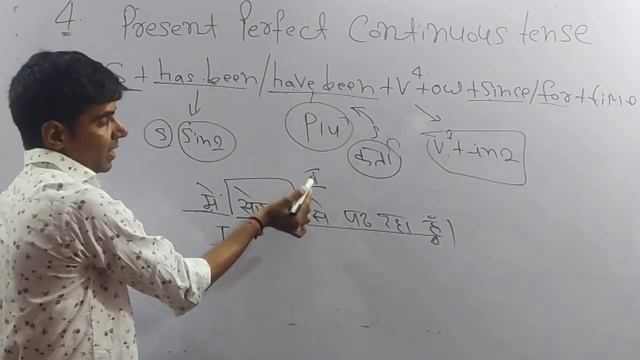 4. Present Perfect Continuous tense
S + has been / have been + V⁴ + ow + since / for + time
S Sing Plu कर्ता V¹ + ing
I
मैं से पढ रहा हूँ।
I